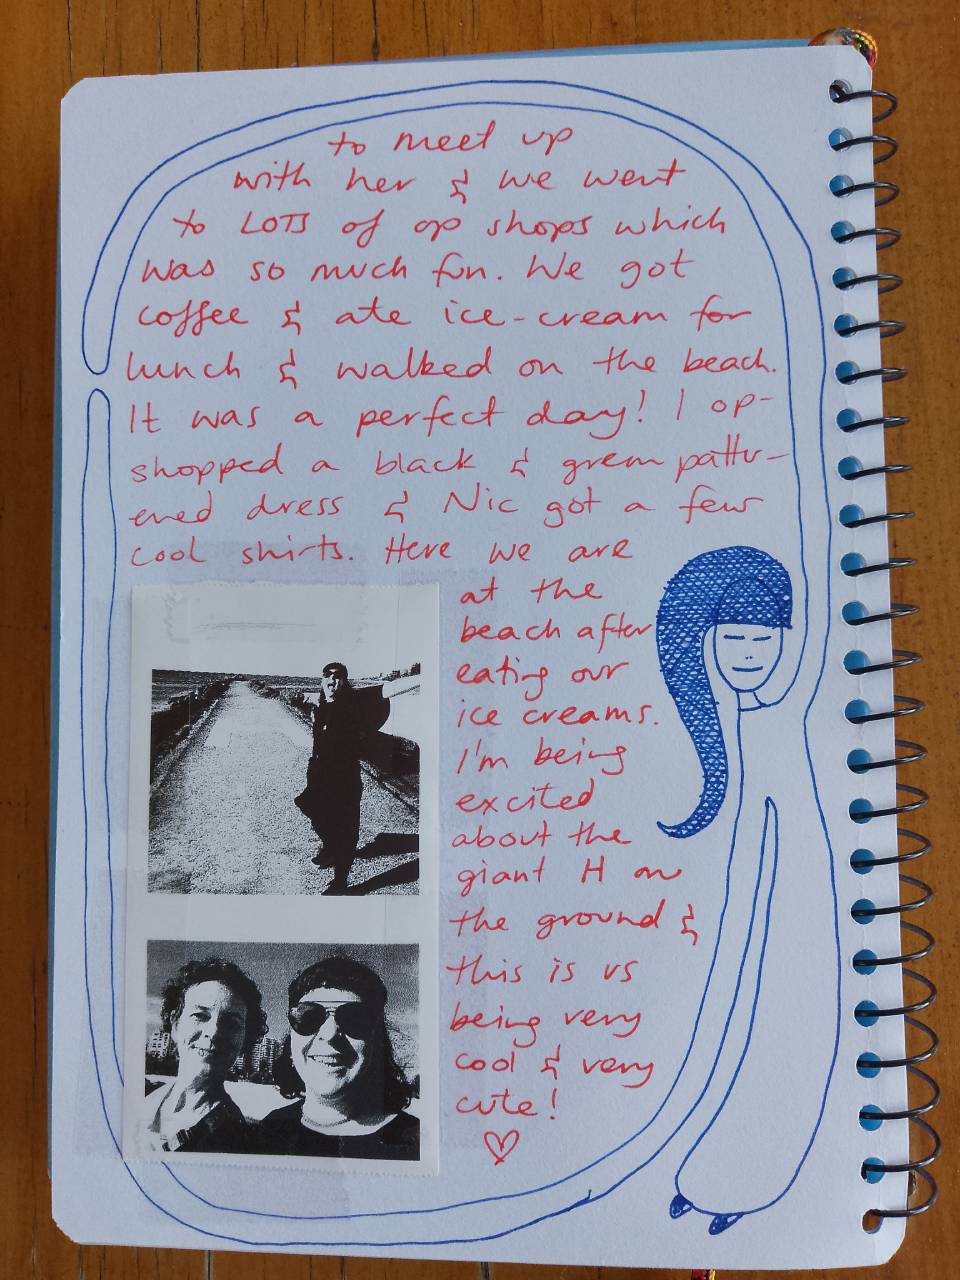 to meet up
with her & we went
to LOTS of op shops which
was so much fun. We got
coffee & ate ice-cream for
lunch & walked on the beach.
It was a perfect day! I op-
shopped a black & green patter-
ened dress & Nic got a few
cool shirts. Here we are
at the
beach after
eating our
ice creams.
I'm being
excited
about the
giant H on
the ground &
this is us
being very
cool & very
cute!